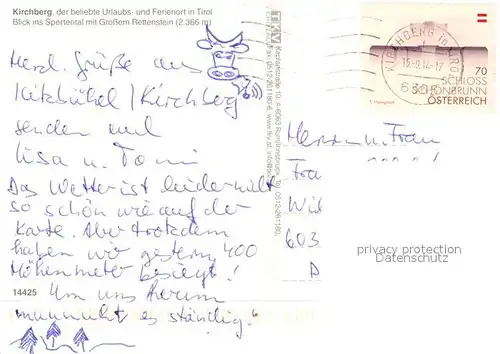 Kirchberg, der beliebte Urlaubs- und Ferienort in Tirol
Blick ins Spertental mit Großem Rettenstein (2.366 m)
Herzl. Grüße aus
Kitzbühel / Kirchberg
senden euch
Lisa u. Toni
Das Wetter ist leider nicht
so schön wie auf der
Karte. Aber trotzdem
haben wir gestern 400
Höhenmeter besiegt!
Um uns herum
"muuuht" es ständig.
14425
TKV
KIRCHBERG IN TIROL
15.9.14-17
70
SCHLOSS
SCHÖNBRUNN
ÖSTERREICH
Herrn u. Frau
Frau
Wil
603
D
privacy protection
Datenschutz